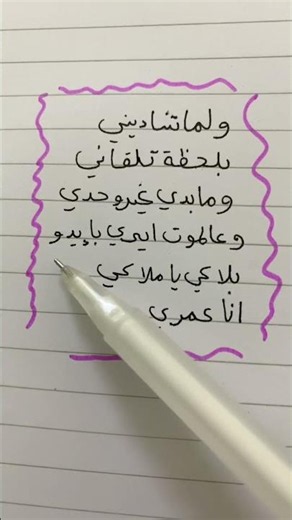 ولما تناديني
بلحظة تلقاني
وما بدي غير وحدي
وعالموت ايدي بإيدو
بلاكي يا ملاكي
انا عمري